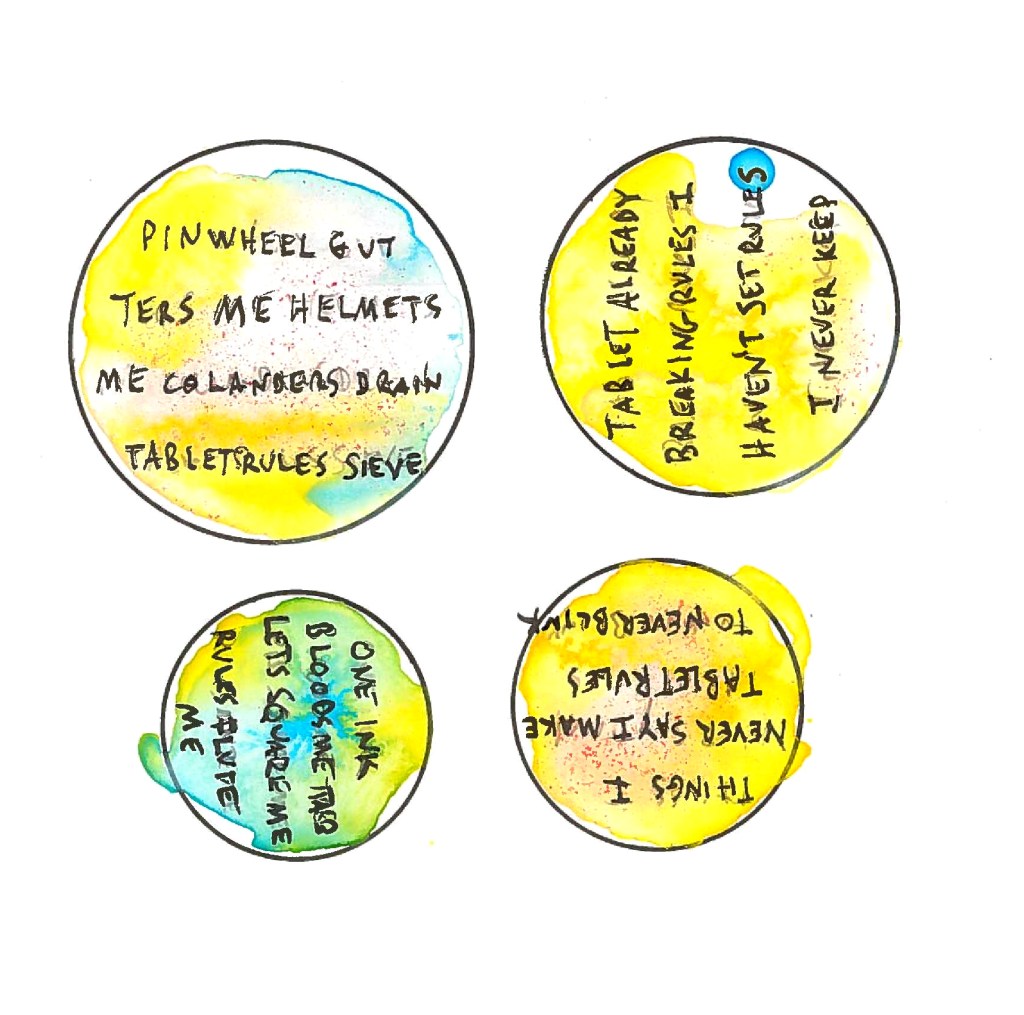 PINWHEEL GUT
TERS ME HELMETS
ME COLANDERS DRAIN
TABLETS RULES SIEVE
TABLET ALREADY
BREAKING RULES I
HAVEN'T SET RULES
I NEVER KEEP
ONE INK
BLOODS ME TAB
LETS SQUARE ME
RULES
ME
THINGS I
NEVER SAY I MAKE
TABLET RULES
TO NEVER BLINK